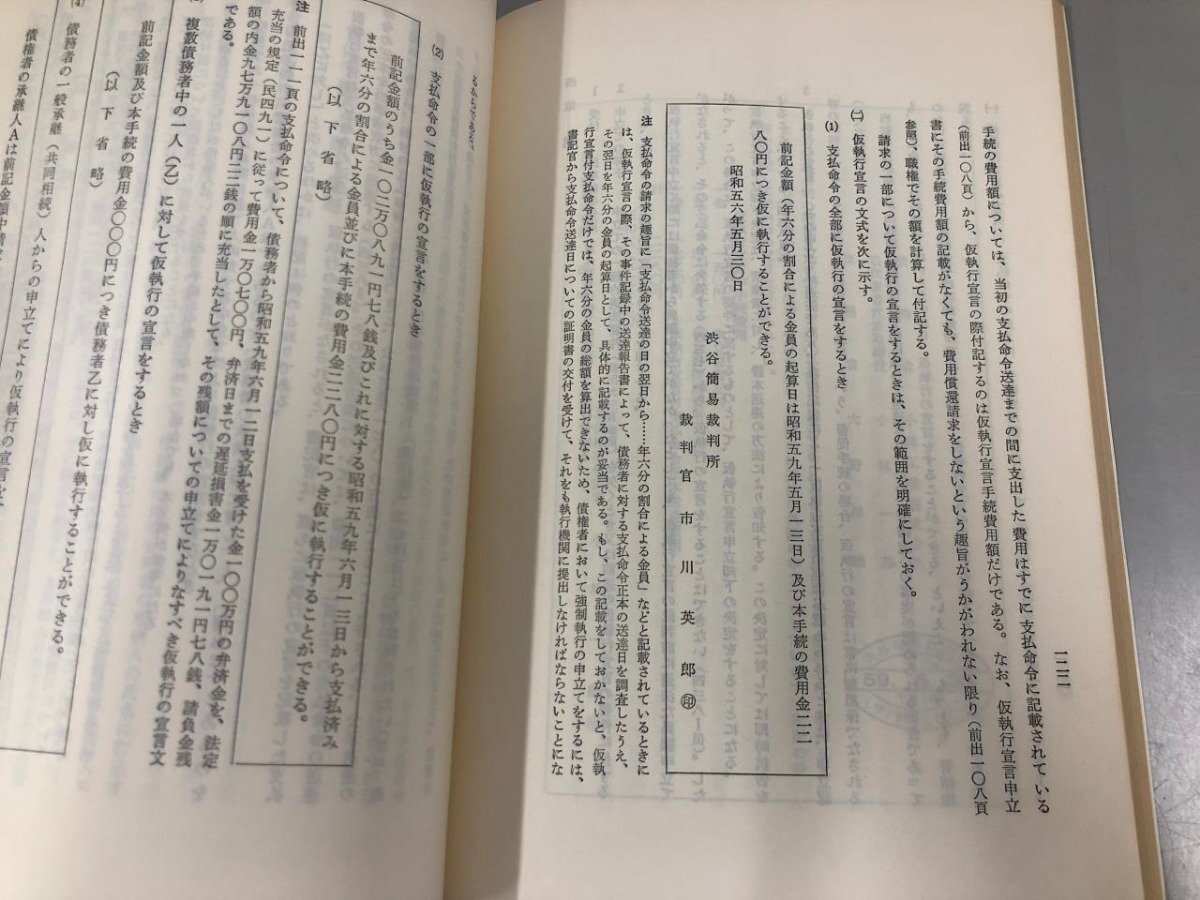 一二二
手続の費用額については、当初の支払命令送達までの間に支出した費用はすでに支払命令に記載されている
(前出一〇八頁)から、仮執行宣言の際付記するのは仮執行宣言手続費用額だけである。なお、仮執行宣言申立
書にその手続費用額の記載がなくても、費用償還請求をしないという趣旨がうかがわれない限り(前出一〇八頁
参照)、職権でその額を計算して付記する。
請求の一部について仮執行の宣言をするときは、その範囲を明確にしておく。
㈡ 仮執行宣言の文式を次に示す。
(1) 支払命令の全部に仮執行の宣言をするとき
前記金額(年六分の割合による金員の起算日は昭和五九年五月一三日)及び本手続の費用金二二
八〇円につき仮に執行することができる。
昭和五六年五月三〇日
渋谷簡易裁判所
裁判官 市川英郎 ㊞
注 支払命令の請求の趣旨に「支払命令送達の日の翌日から……年六分の割合による金員」などと記載されているときに
は、仮執行宣言の際、その事件記録中の送達報告書によって、債務者に対する支払命令正本の送達日を調査したうえ、
その翌日を年六分の金員の起算日として、具体的に記載するのが妥当である。もし、この記載をしておかないと、仮執
行宣言付支払命令だけでは、年六分の金員の総額を算出できないため、債権者において強制執行の申立てをするには、
書記官から支払命令送達日についての証明書の交付を受けて、それをも執行機関に提出しなければならないことにな
るからである。
(2) 支払命令の一部に仮執行の宣言をするとき
前記金額のうち金一〇二万〇八九一円七八銭及びこれに対する昭和五九年六月一三日から支払済み
まで年六分の割合による金員並びに本手続の費用金二二八〇円につき仮に執行することができる。
(以下省略)
注 前出一一一頁の支払命令について、債務者から昭和五九年六月一二日支払を受けた金一〇〇万円の弁済金を、法定
充当の規定(民四九一)に従って費用金一万〇七〇〇円、弁済日までの遅延損害金一万〇一九一円七八銭、請負金残
額の内金九七万九一〇八円二二銭の順に充当したとして、その残額についての申立てによりなすべき仮執行の宣言文
である。
複数債務者中の一人(乙)に対して仮執行の宣言をするとき
前記金額及び本手続の費用金〇〇〇円につき債務者乙に対し仮に執行することができる。
(以下省略)
(4) 債務者の一般承継(共同相続)人からの申立てにより仮執行の宣言を
債権者の承継人Aは前記金額中